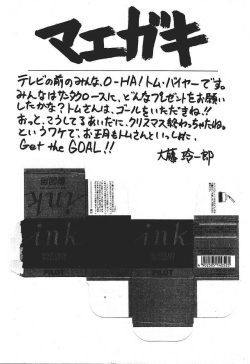 マエガキ
テレビの前のみんな、O-HA!トム・バイヤーです。
みんなはサンタクロースに、どんなプレゼントをお願い
したかな?トムさんは、ゴールをいただきネ!!
おっと、こうしてるあいだに、クリスマス終わっちゃたね。
というワケで、お正月もトムさんといっしょに、
Get the GOAL!!
大藤 玲一郎
ink
ink
ink
PILOT
PILOT